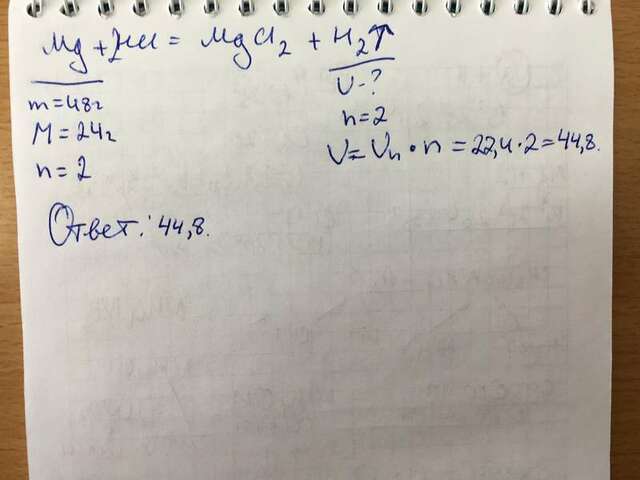 Mg + 2HCl = MgCl₂ + H₂↑
m=48г
M=24г
n=2
V-?
n=2
V=Vn·n=22,4·2=44,8.
Ответ: 44,8.